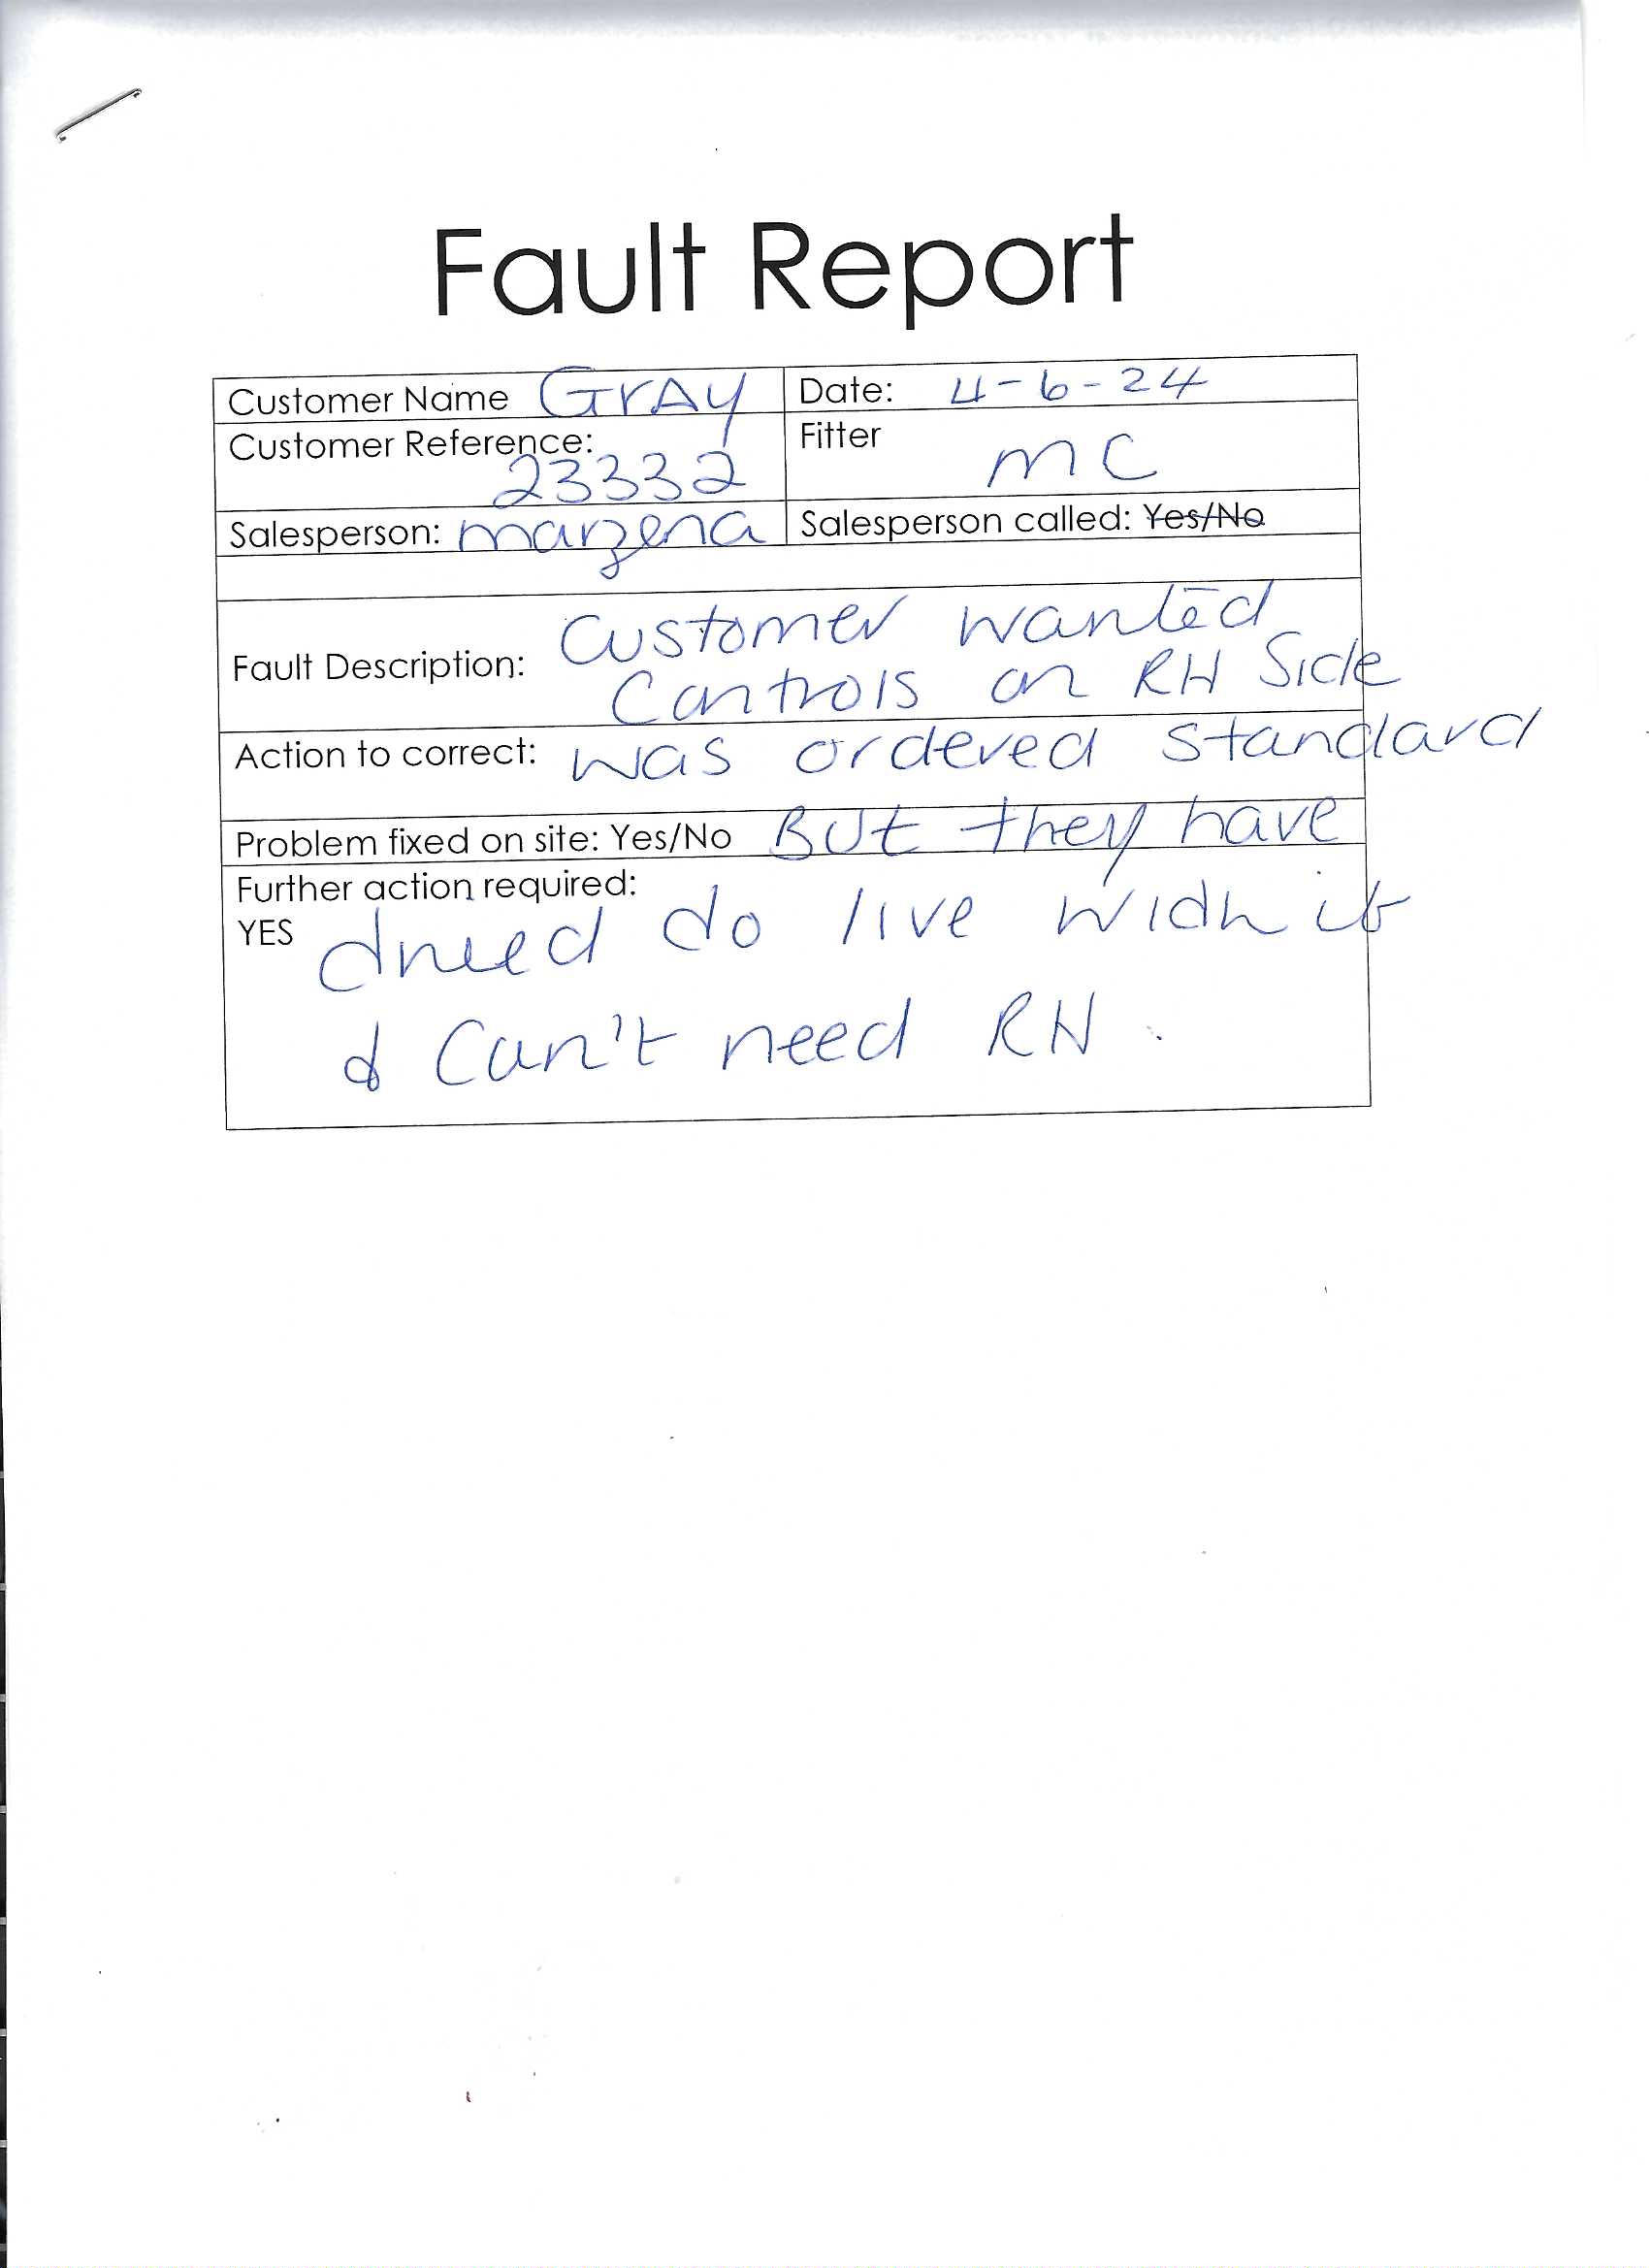 Fault Report
Customer Name Gray Date: 4-6-24
Customer Reference: 23332 Fitter MC
Salesperson: marzena Salesperson called: Yes/No
Fault Description: Customer wanted
Controls on RH Side
Action to correct: was ordered standard
Problem fixed on site: Yes/No But they have
Further action required:
YES do live widh it
& Can't need RH.